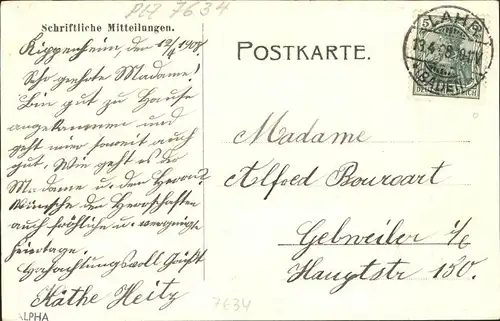 PLZ 7634
Schriftliche Mitteilungen.
Kippenheim, den 12/4 1908.
Sehr geehrte Madame!
Bin gut zu Hause
angekommen und
geht mir soweit auch
gut. Wie geht es der
Madame u. den Herrn?
Wünsche den Herrschaften
auch fröhliche u. vergnügte
Feiertage.
Hochachtungsvoll Grüßt
Käthe Heitz
ALPHA
POSTKARTE.
LAHR
13.4.08
(BADEN)
5
Madame
Alfred Bourcart
Gebweiler i/E
Hauptstr 130.
7634